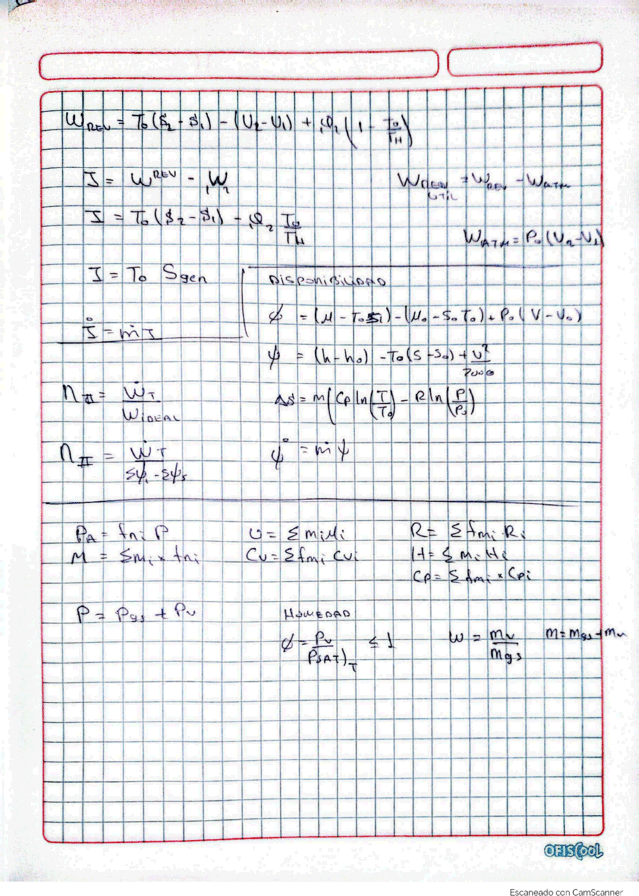 W_REV = T₀(S₂ - S₁) - (U₂ - U₁) + ₁Q₂(1 - T₀/T_H)
I = W^REV - ₁W₂
W_REV ÚTIL = W_REV - W_ATM
I = T₀(S₂ - S₁) - ₁Q₂ T₀/T_H
W_ATM = P₀(V₂ - V₁)
I = T₀ Sgen
İ = ṁI
DISPONIBILIDAD
φ = (u - T₀S) - (u₀ - S₀T₀) + P₀(V - V₀)
ψ = (h - h₀) - T₀(S - S₀) + v²/2000
η_II = Ẇ_T/W_IDEAL
ΔS = m(Cp ln(T/T₀) - R ln(P/P₀))
η_II = Ẇ_T/Σψᵢ - Σψₛ
ψ° = ṁψ
P_A = fni P
U = Σ mi ui
R = Σ fmi · Ri
M = Σmi × fni
Cv = Σfmi Cvi
H = Σ mi Hi
Cp = Σ fmi × Cpi
P = Pgs + Pv
HUMEDAD
φ = Pv/PSAT)_T ≤ 1
W = mv/mgs
m = mgs + mv
OFISCOOL
Escaneado con CamScanner